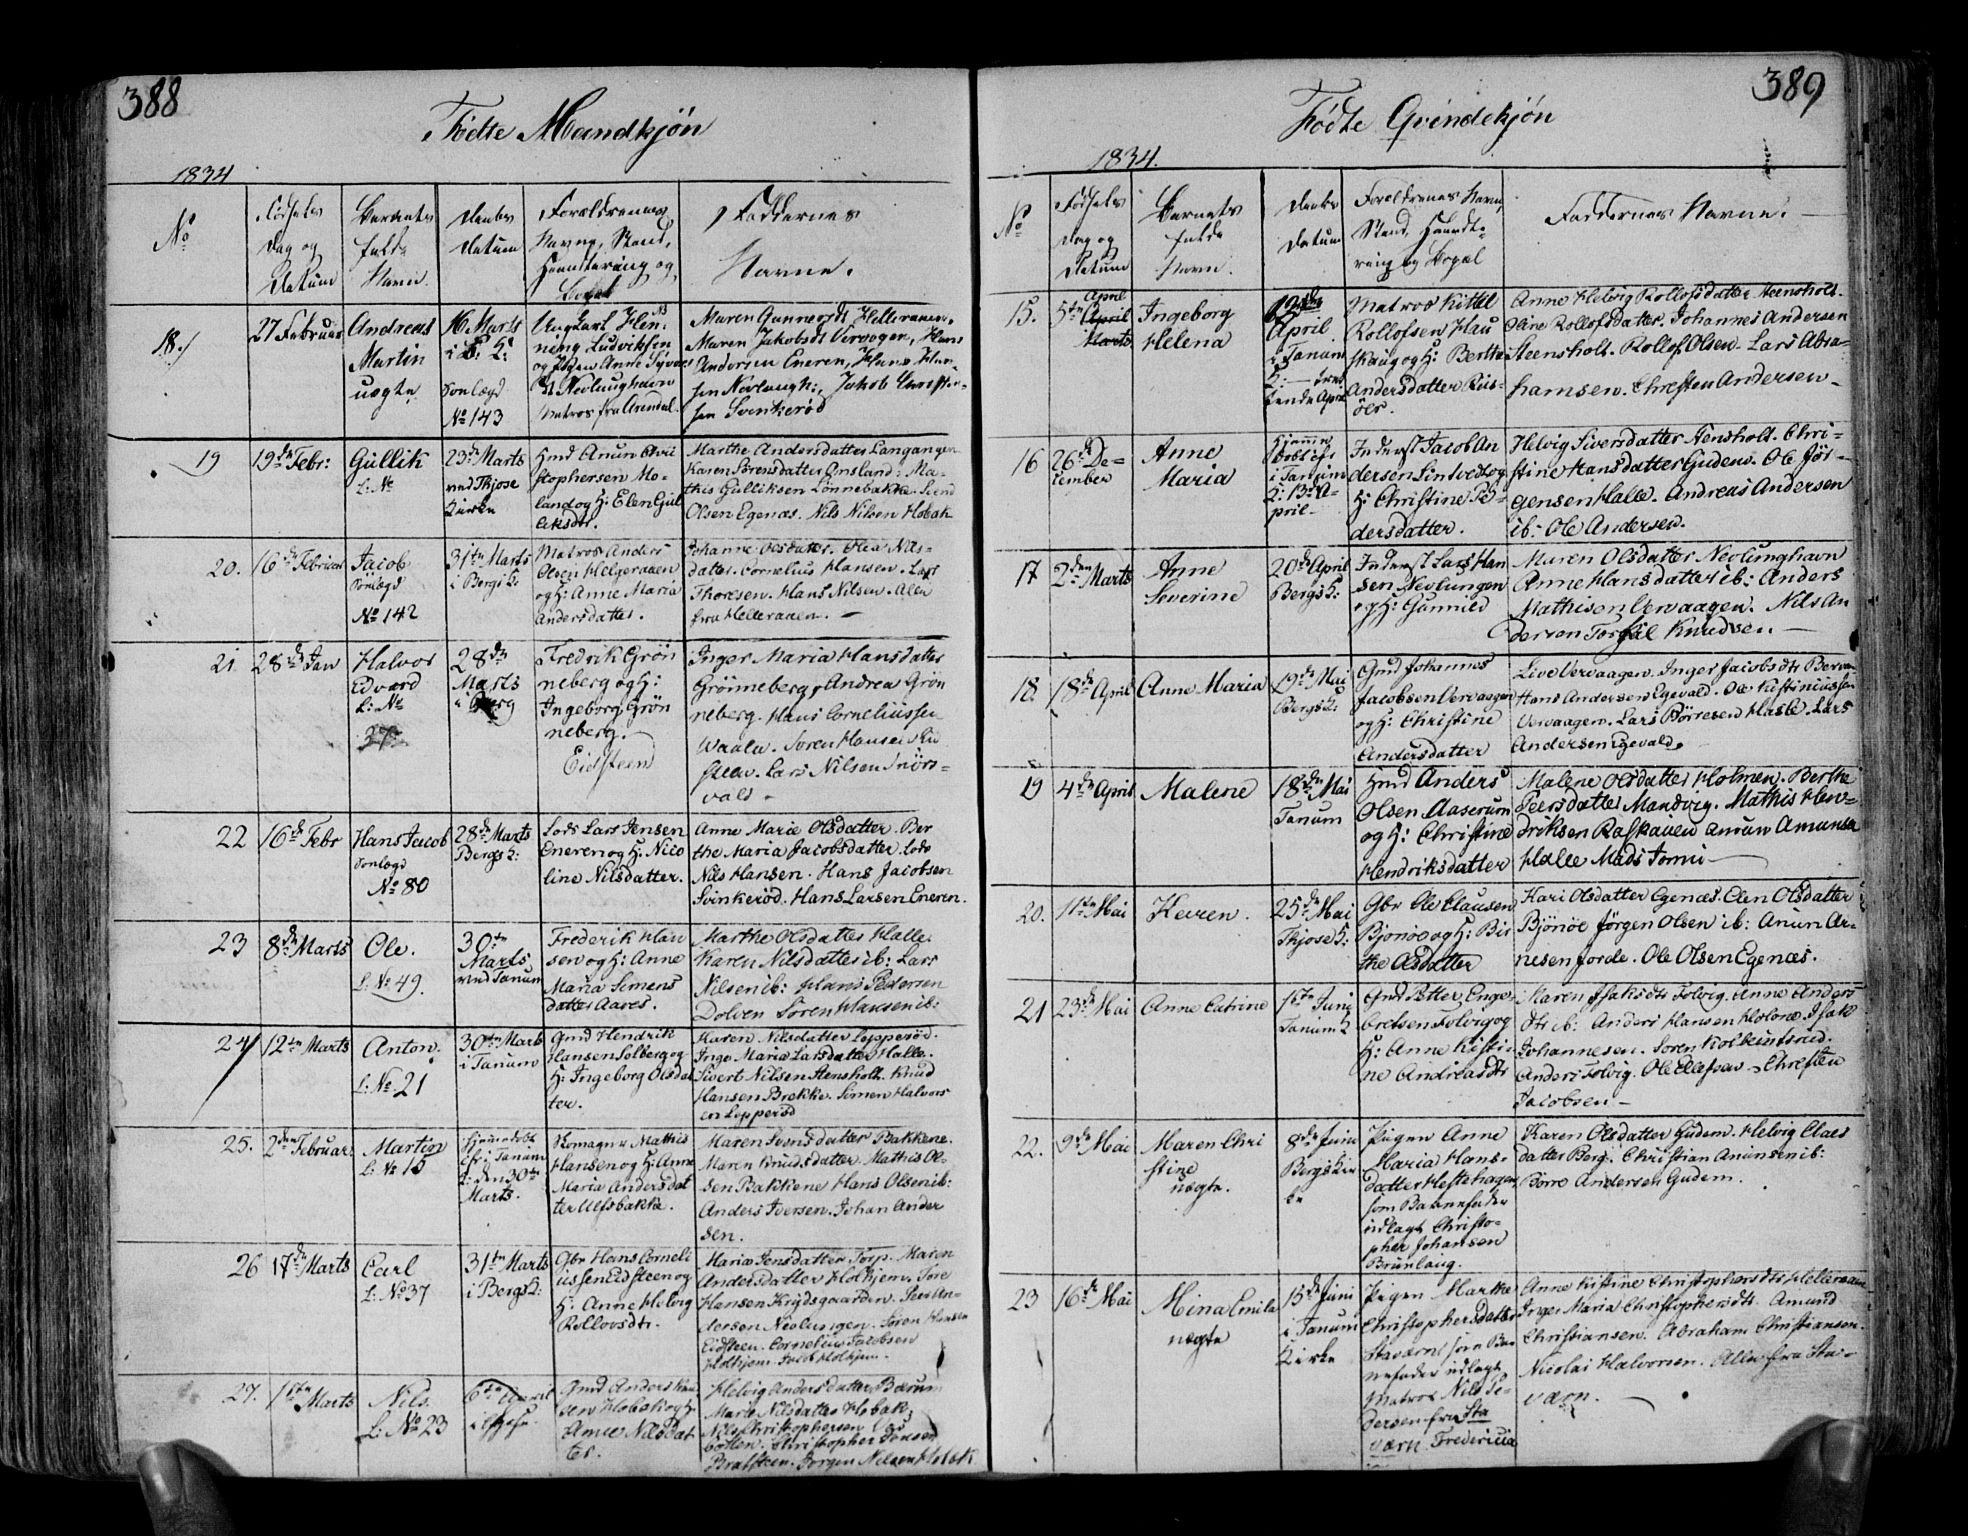 388
Fødte Mandkjøn
1834
No
Fødsels
Dag og
Datum
Barnets
fulde
Navn.
Daabs
Datum
Forældrenes
Navne, Stand,
Haandtering og
Bopæl
Faddernes
Navne.
18.
27 Februar
Andreas
Martin
uægte
16 Marts
No 143
Ungkarl Hen-
ning Ludviksen
og Pigen Anne
Nevlunghavn
Matros fra Arendal.
Maren Gunnersdt Helleraaen.
Maren Jakobsdt Vervogen, Hans
Andersen Eneren, Hans Han-
sen Nevlungh:, Jakob Christen-
sen Svinkerød
19
19de Febr:
Gullik
L: No
23de Marts
ved Thjose
Kirke
Gmd Anun Chri
stophersen Mo-
land og H: Elen Gul
liksdtr.
Marthe Andersdatter Langangen
Karen Sørensdatter Ønsland. Ma-
this Gulliksen Lønnebakke. Svend
Olsen Egenæs. Nils Nilsen Hobæk
20.
16de Februar
Jacob
Sønlægd
No 142
31te Marts
i Bergs K:
Matros Anders
Olsen Helgeraaen
og H: Anne Maria
Andersdatter.
Johanne Olsdatter. Olea Nils-
datter. Cornelius Hansen. Lars
Thoresen. Hans Nilsen. Alle
fra Helleraaen. —
21.
28de Jan
Halvor
Edvard
L: No
28de
Marts
Berg
Fredrik Grøn
neberg og H:
Ingeborg Grøn
neberg.
Eidsteen
Inger Maria Hansdatter
Grønneberg, Andrea Grøn
neberg. Hans Corneliussen
Waale. Søren Hansen Eid
steen. Lars Nilsen Snørs-
vald -
22
16de Febr
Hans Jacob
Sønlægd
No 80
28de Marts
Bergs K:
Lods Lars Jensen
Eneren og H: Nico
line Nilsdatter.
Anne Marie Olsdatter. Ber
the Maria Jacobsdatter. Lods
Nils Hansen. Hans Jacobsen
Svinkerød. Hans Larsen Eneren.
23
8de Marts
Ole.
L: No 49.
30te
Marts
ved Tanum
Frederik Han
sen og H: Anne
Maria Simens
datter Aaros.
Marthe Olsdatter Halle.
Karen Nilsdatter ib: Lars
Nilsen ib: Hans Pedersen
Dolven Søren Hansen ib:
24
12te Marts
Anton.
L: No 21
30te Marts
i Tanum
Gmd Hendrik
Hansen Solberg og
H: Ingeborg Olsdat
ter.
Karen Nilsdatter Lepperød.
Inge Maria Larsdatter Halle.
Sivert Nilsen Stensholt. Knud
Hansen Brekke. Simen Halvors
en Lepperød
25.
2den Februar
Martin
L: No 15
hjemmedøbt
i Tanum
K: den 30te
Marts.
Mathis
Hansen og H: Anne
Maria Andersdat
ter Ulfsbakke.
Maren Svensdatter Bakkene.
Maren Knudsdatter. Mathis Ol-
sen Bakkene Hans Olsen ib:
Anders Iversen. Johan Ander
sen.
26
17de Marts
Carl
L: No 37
31te Marts
i Bergs K:
Gbr Hans Corneli
ussen Eidsteen og
H: Anne Helvig
Rollovsdtr.
Maria Jensdatter Torp. Maren
Andersdatter Holhjem. Tore
Hansen Krydsgaarden. Peer An-
dersen Nevlungen. Søren Hansen
Eidsteen. Cornelius Jacobsen
Holhjem. Jacob Holhjem.
27.
1ste Marts
Nils.
L: No 23
6te April
Gmd Anders Han
sen Hobæk og H:
Anne Nilsdat
ter.
Helvig Andersdatter Bærum
Marte Nilsdatter Hobæk,
Nils Christophersen
Christopher Jonsen
Bratsteen. Jørgen Nilsen Hobæk
389
Fødte Qvindekjøn
1834.
No
Fødsels
Dag og
Datum
Barnets
fulde
Navn.
Daabs
Datum
Forældrenes Navn,
Stand, Haandte-
ring og Bopæl
Faddernes Navne.
15.
April
5te April
Marts
Ingeborg
Helena
12de
April
i Tanum
Matros Kittel
Rollofsen Hau
skaug og H: Berthe
Andersdatter Riis-
öer.
Anne Helvig Rollofsdatter Steensholt.
Oline Rollofsdatter. Johannes Andersen
Steensholt. Rollof Olsen. Lars Abra-
hamsen. Christen Andersen -
16
26de De-
cember
Anne
Maria
Hjemme
døbt
i Tanum
K: 13de A-
pril.
Inderst Jacob An
dersen Lindvedt og
H: Christine Pe-
dersdatter.
Helvig Siversdatter Stensholt. Chri-
stine Hansdatter Gudem. Ole Jør-
gensen Halle. Andreas Andersen
ib: Ole Andersen.
17
2den Marts
Anne
Severine
20de April
Bergs K:
Inderst Lars Han
sen Nevlungen
og H: Gunnild
Maren Olsdatter Nevlunghavn
Anne Hansdatter ib: Anders
Mathisen Vervaagen. Nils An
dersen Torgal Knudsen —
18.
18de April
Anne Maria
19de Mai
Bergs K:
Gmd Johannes
Jacobsen Vervaagen
og H: Christine
Andersdatter
Live Vervaagen. Inger Jacobsdt Berven
Hans Andersen Egevald. Ole Kistiniussen
Vervaagen. Lars Børresen Hasle. Lars
Andersen Egevald.
19
4de April
Malene
18de Mai
Tanum
Gmd Anders
Olsen Aaserum
og H: Christine
Hendriksdatter
Malene Olsdatter Holmen. Berthe
Peersdatter Mandvig. Mathis Hen-
driksen Raskauen Anun Amunsen
Halle Mads Tomis —
20.
11te Mai
Karen.
25de Mai
Thjose K:
Gbr Ole Clausen
Bjønøe og H: Bir
the Olsdatter
Kari Olsdatter Egenæs. Elen Olsdatter
Bjönöe Jörgen Olsen ib: Anun Ar-
nesen Jorde. Ole Olsen Egenæs.
21
23de Mai
Anne Catrine
15de Juni
Tanum K
Gmd Petter Enge-
bretsen Folvig og
H: Anne Kisti-
ne Andreasdtr
Maren Isaksdtr Folvig. Anne Anders
dtr ib: Anders Hansen Holone. Isak
Johannesen. Søren Kolbeinsrud.
Anders Folvig. Ole Ellefsen. Christen
Jacobsen —
22.
9de Mai
Maren Chri
stine
uægte.
8de Juni
Bergs Kir
ke
Pigen Anne
Maria Hans-
datter Hestehagen
som Barnefader
udlagt Christo-
pher Johansen
Brunlaug.
Karen Olsdatter Gudem. Helvig Claes
datter Berg. Christian Anunsen ib:
Børre Andersen Gudem.
23
16de Mai
Mina Emilie
uægte
15de Juni
i Tanum
Kirke
Pigen Marthe
Christophersdatter
Staværn, som Bar
nefader udlagt
Matros Nils Pe-
dersen fra Sta
værn Fredericia
Anne Kistine Christophersdtr Helleraaen
Inger Maria Christophersdtr. Amund
Christiansen. Abraham Christiansen.
Nicolai Halvorsen. Alle fra Sta-
værn.